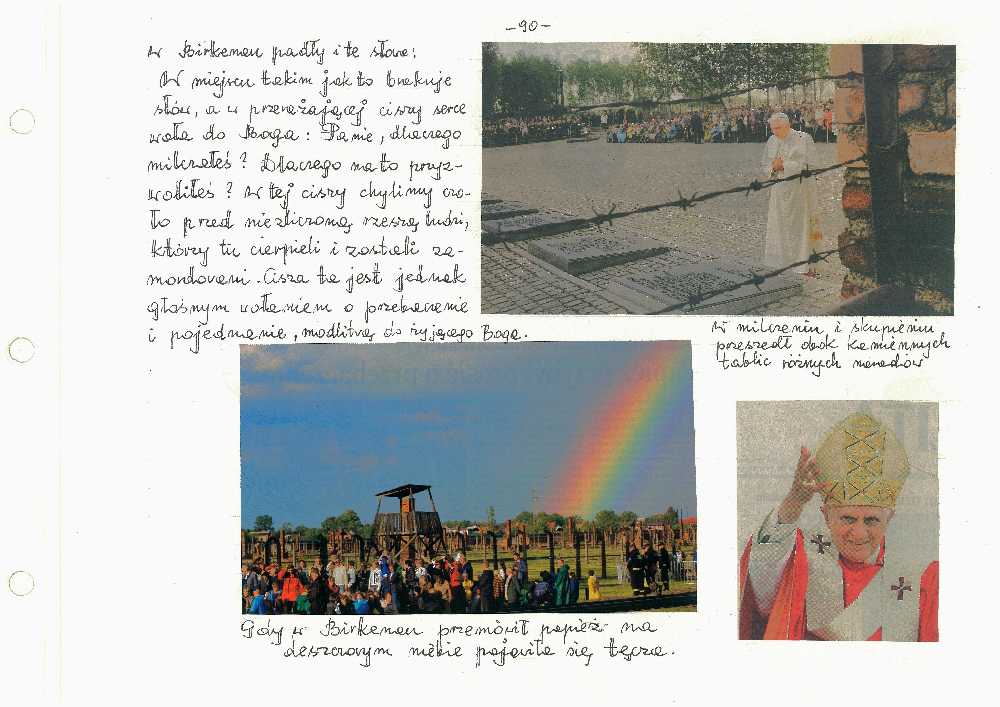 -90-
w Birkenau padły i te słowa:
W miejscu takim jak to brakuje
słów, a w przerażającej ciszy serce
woła do Boga: Panie, dlaczego
milczałeś? Dlaczego na to przyz-
woliłeś? W tej ciszy chylimy czo-
ło przed niezliczoną rzeszą ludzi,
którzy tu cierpieli i zostali za-
mordowani. Cisza ta jest jednak
głośnym wołaniem o przebaczenie
i pojednanie, modlitwą do żyjącego Boga.
W milczeniu i skupieniu
przeszedł obok kamiennych
tablic różnych narodów
Gdy w Birkenau przemówił papież na
deszczowym niebie pojawiła się tęcza.